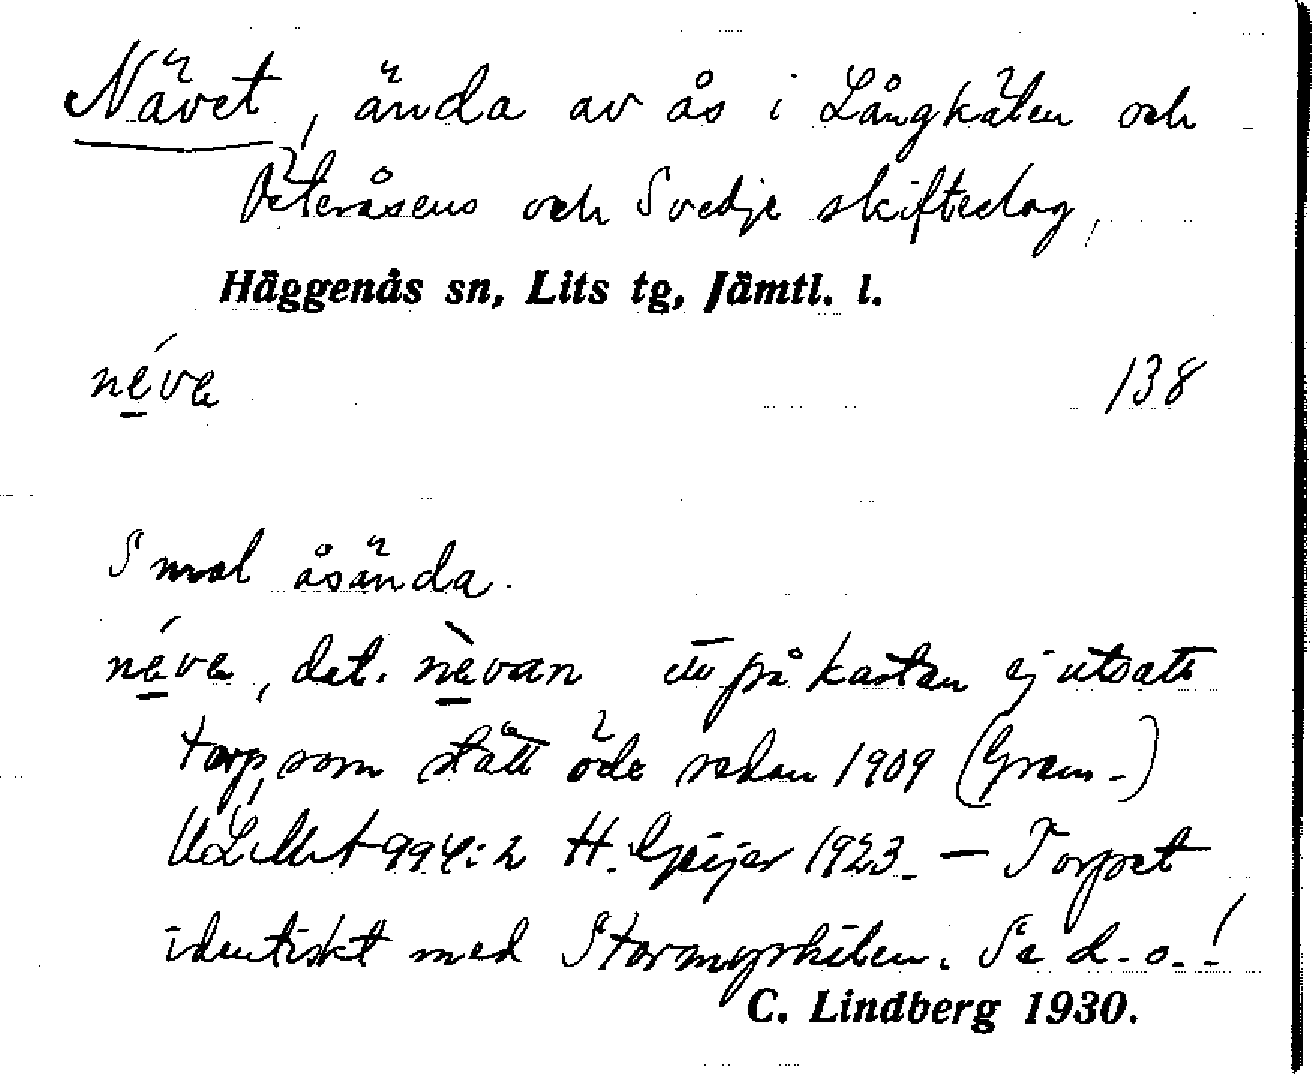 Nävet, ända av ås i Långkälen och
Öteråsens och Svedje skiftedlag,
Häggenås sn, Lits tg, Jämtl. l.
néve 138
Smal åsända.
néve, dat. nèvan ett på kartan ej utsatt
torp, som stått öde sedan 1909 (Gram-)
ULMA 994:2 H. Geijer 1923. — Torpet
identiskt med Stormyrkilen. Se d.o.!
C. Lindberg 1930.